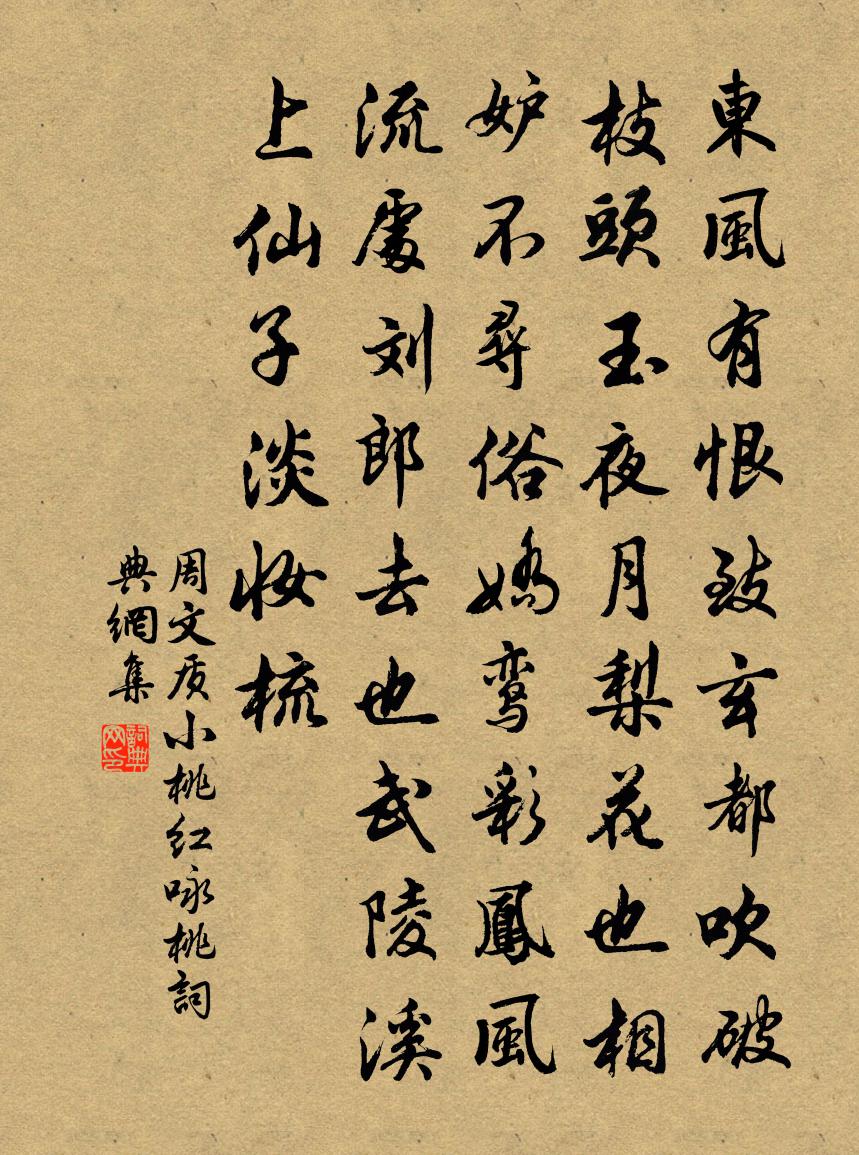 東風有恨致玄都吹破
枝頭玉夜月梨花也相
妒不尋俗嬌鸾彩鳳風
流處刘郎去也武陵溪
上仙子淡妝梳
周文质小桃红咏桃詞
典網集
詞典
网印